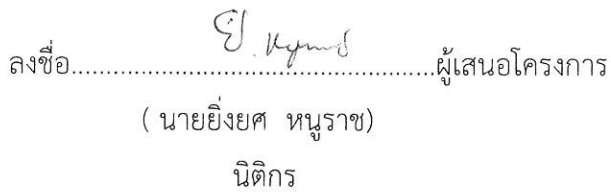 ลงชื่อ................................................ผู้เสนอโครงการ
( นายยิ่งยศ หนูราช)
นิติกร